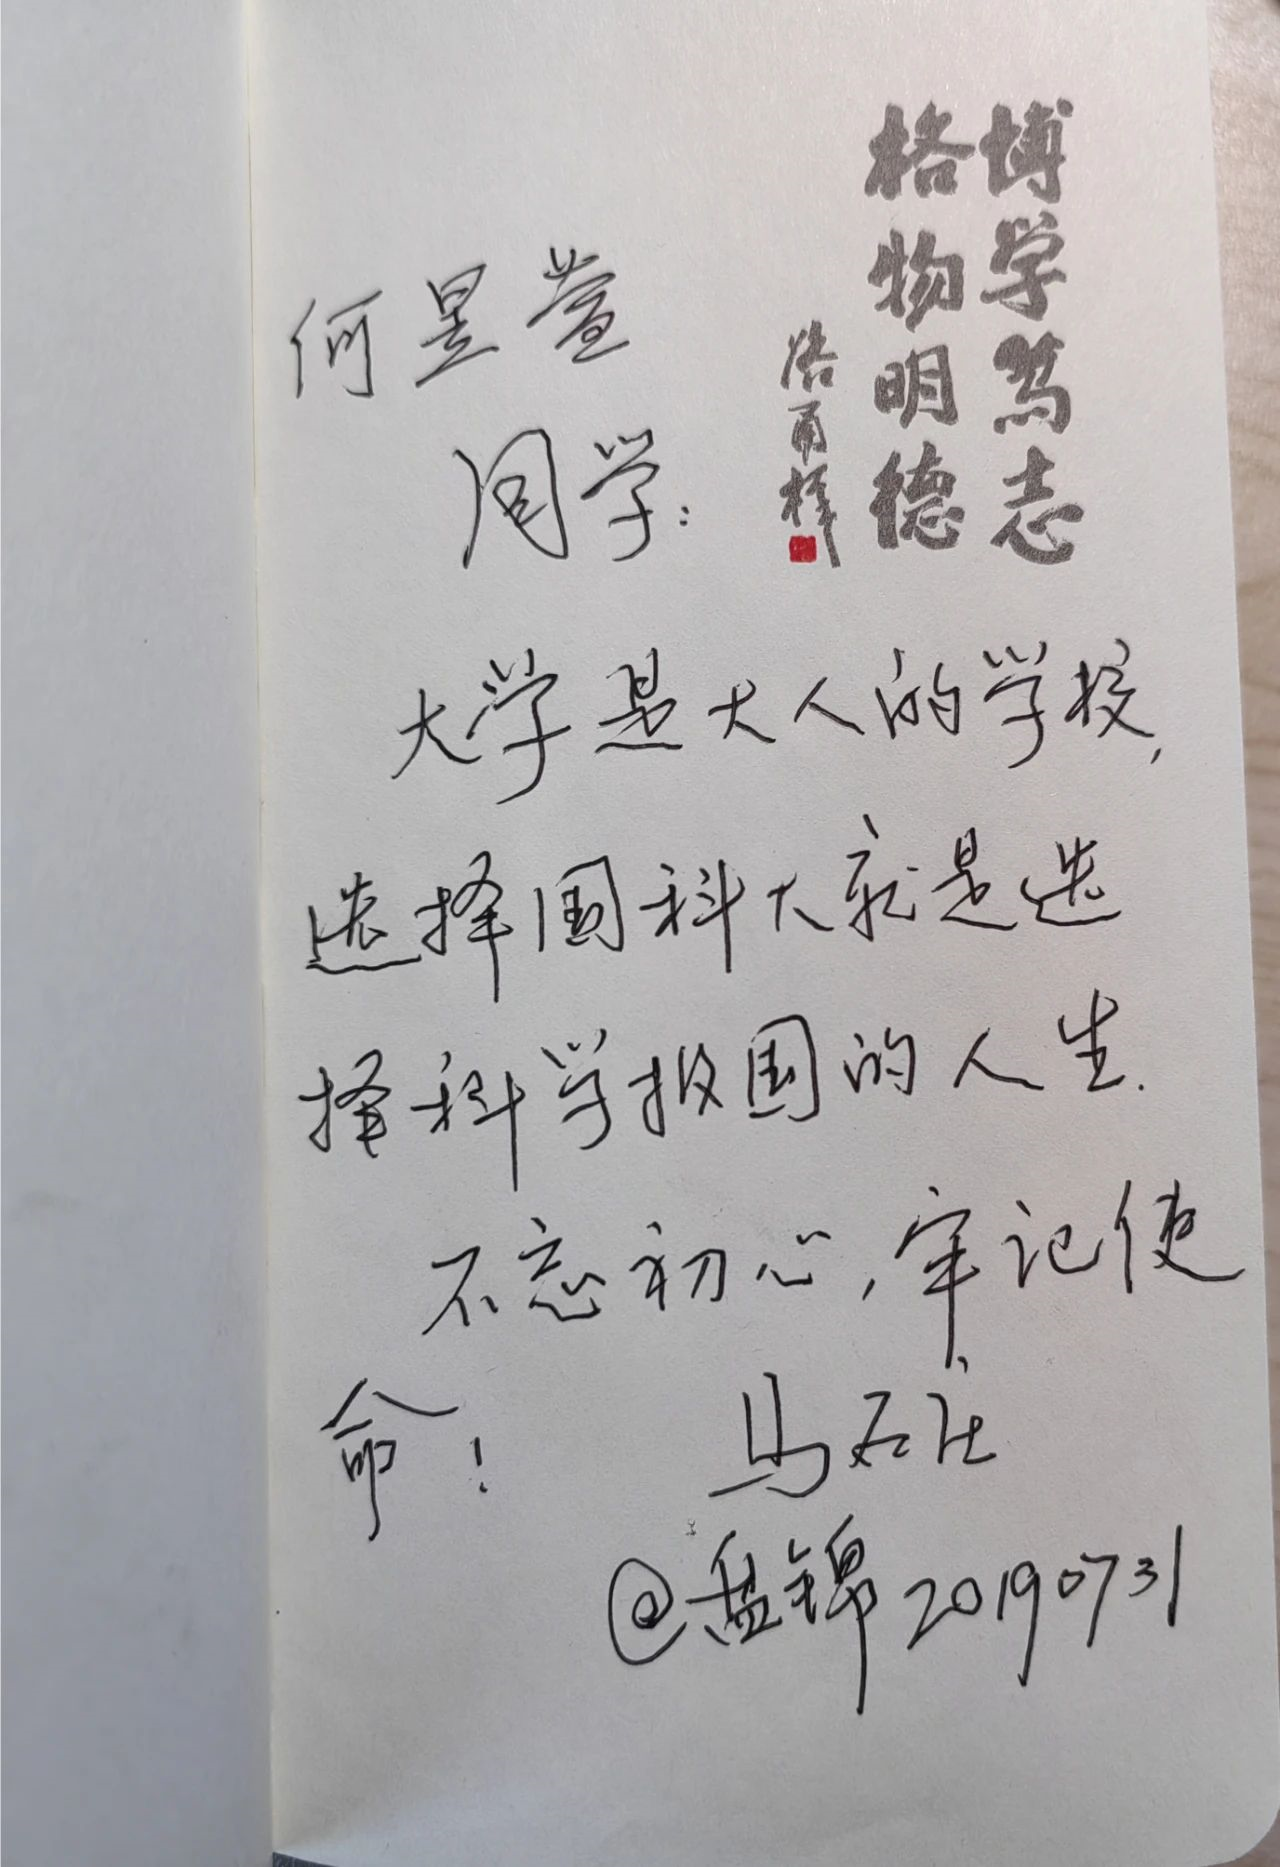 博学笃志
格物明德
路甬祥
何昱萱
同学:
大学是大人的学校,
选择国科大就是选
择科学报国的人生.
不忘初心,牢记使
命!
马石庄
@盘锦20190731